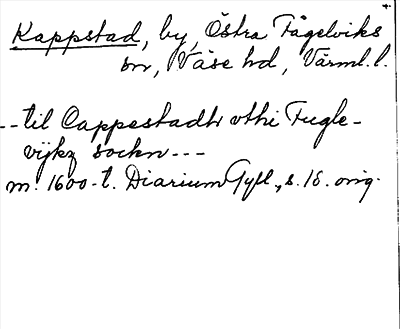 Kappstad, by, Östra Fågelviks
sn, Väse hd, Värml. l.
-- til Cappestadh vthi Fugle-
vijkz sockn ---
m. 1600-t. Diarium Gyll., s. 18. orig.